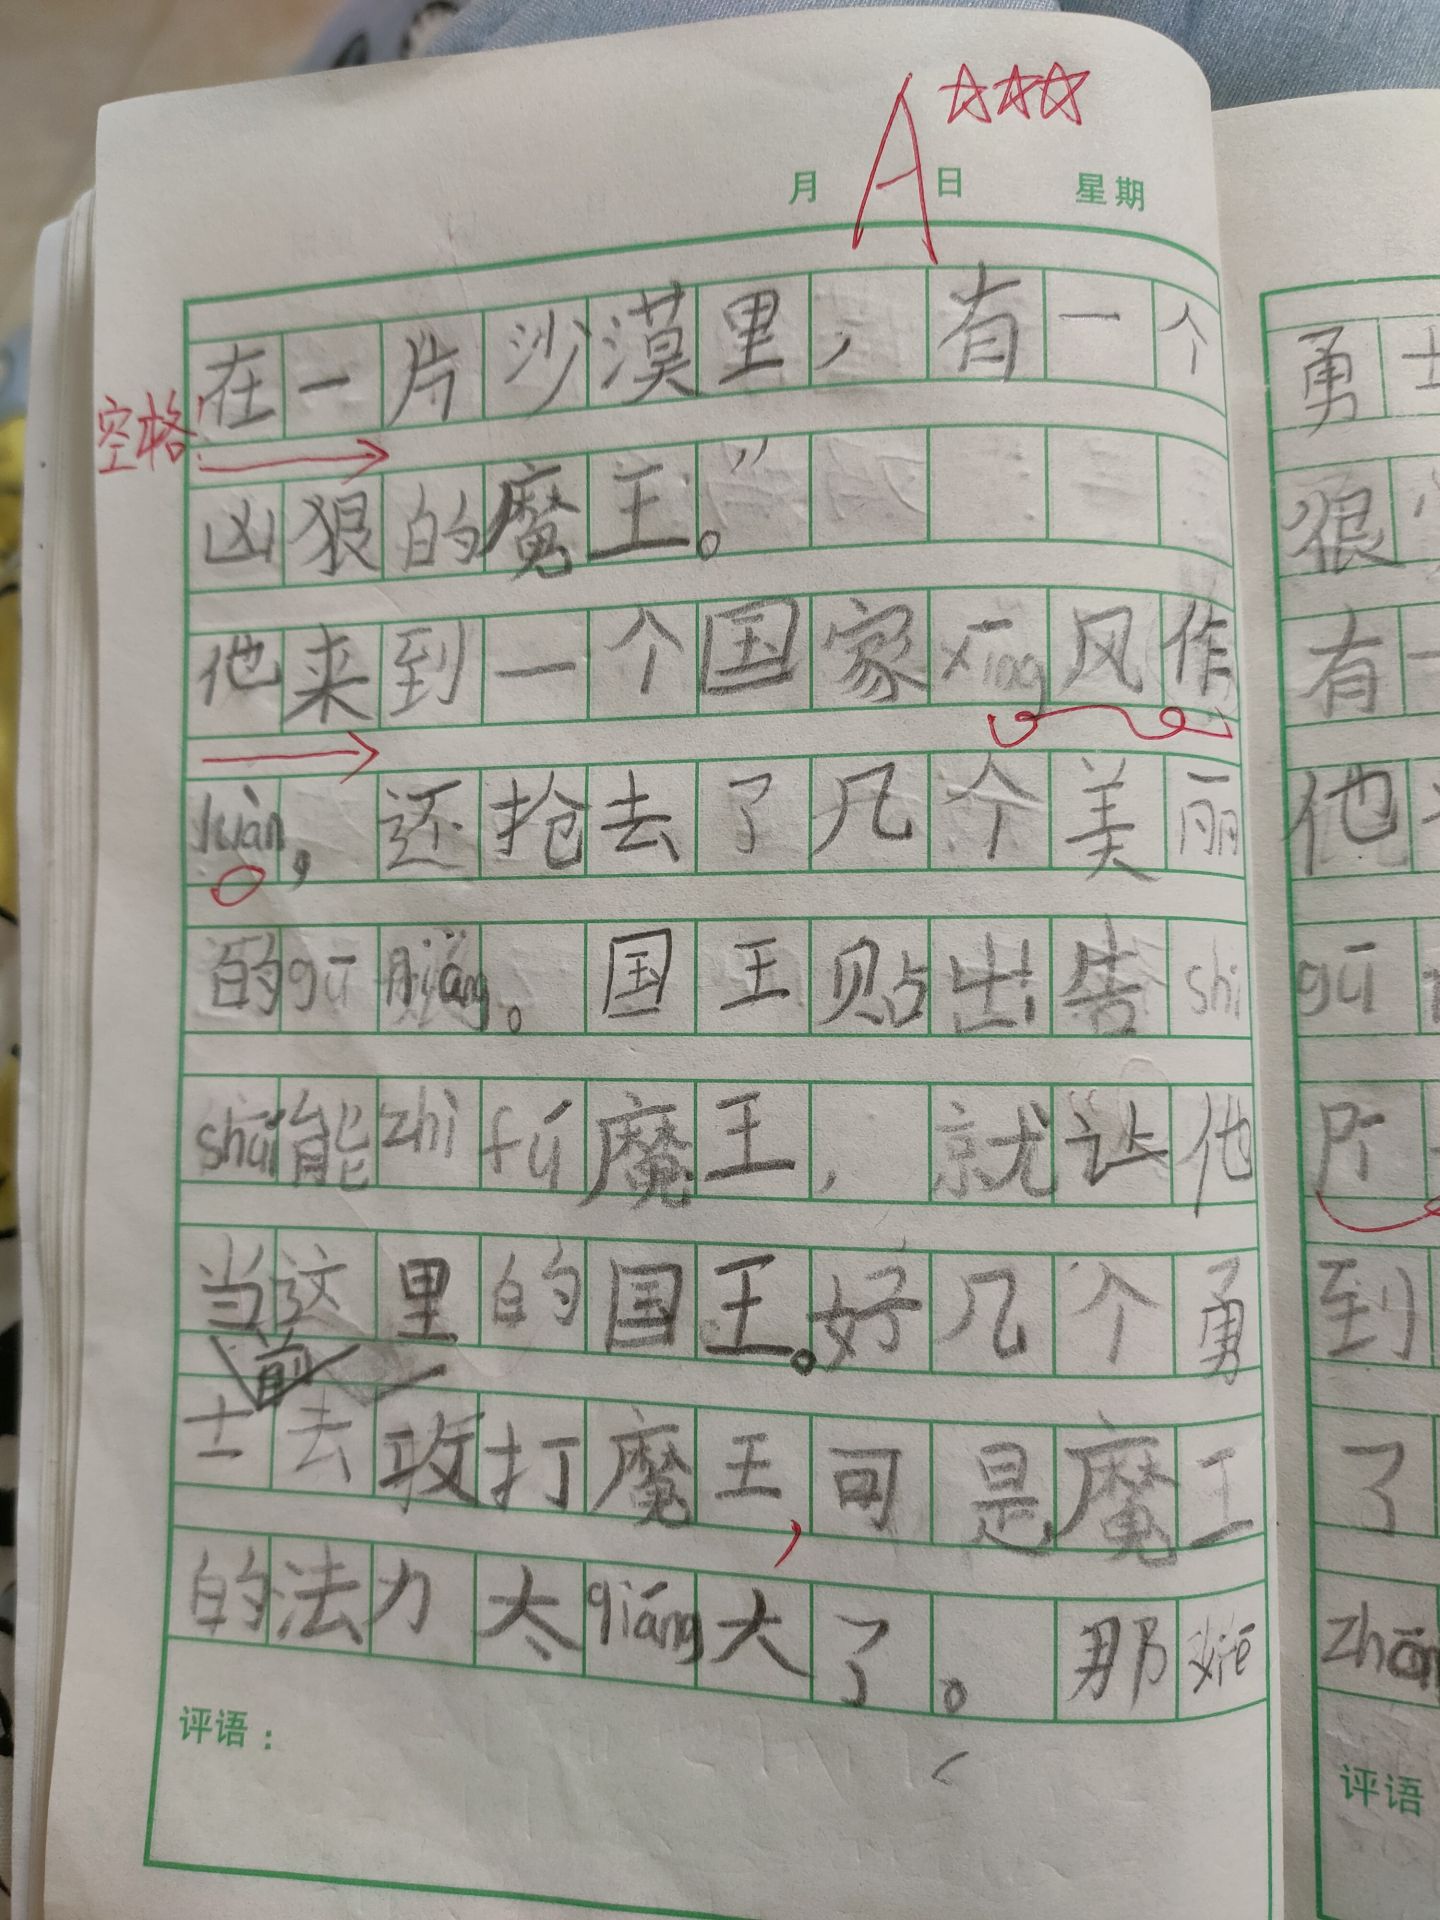 A
月 日 星期
在一片沙漠里，有一个
空格
凶狠的魔王。
他来到一个国家xīng风作
làn，还抢去了几个美丽
的gū niáng。国王贴出告shì
shuí能zhì fú魔王，就让他
当这里的国王。好几个勇
前
士去攻打魔王，可是魔王
的法力太qiáng大了。那xiē
评语：
勇士
狠
有一
他
gū
斤
到
了
评语